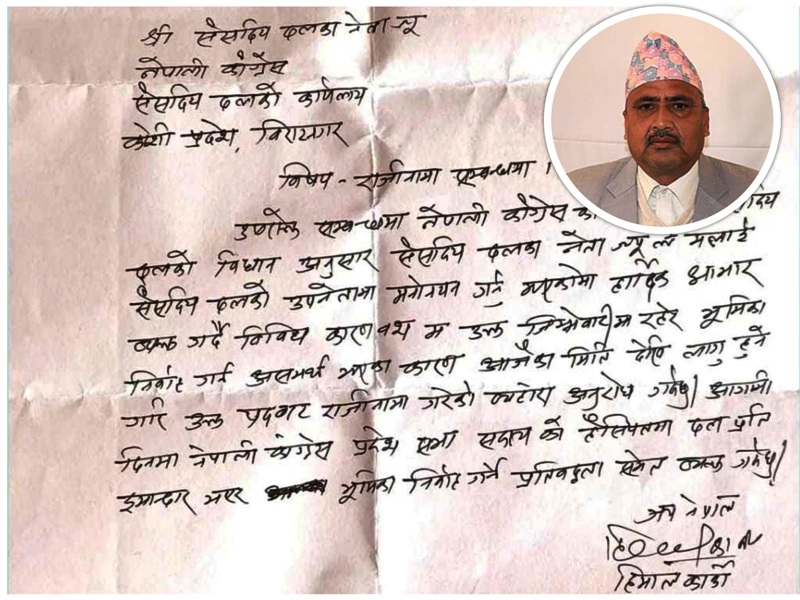 श्री संसदिय दलका नेता ज्यू
नेपाली काँग्रेस
संसदिय दलको कार्यालय
कोशी प्रदेश, विराटनगर
विषय - राजीनामा सम्बन्धमा ।
उपरोक्त सम्बन्धमा नेपाली काँग्रेस
दलको विधान अनुसार संसदिय दलका नेता ज्यूले मलाई
संसदिय दलको उपनेतामा मनोनयन गर्नु भएकोमा हार्दिक आभार
व्यक्त गर्दै विविध कारण वश म उक्त जिम्मेवारीमा रहेर भूमिका
निर्वाह गर्न असमर्थ भएका कारण आजैका मिति देखि लागु हुने
गरि उक्त पदबाट राजीनामा गरेको व्यहोरा अनुरोध गर्दछु। आगामी
दिनमा नेपाली काँग्रेस प्रदेश सभा सदस्य को हैसियतमा दल प्रति
इमान्दार भएर भूमिका निर्वाह गर्ने प्रतिवद्धता समेत व्यक्त गर्दछु।
जय नेपाल
हिमाल कार्की